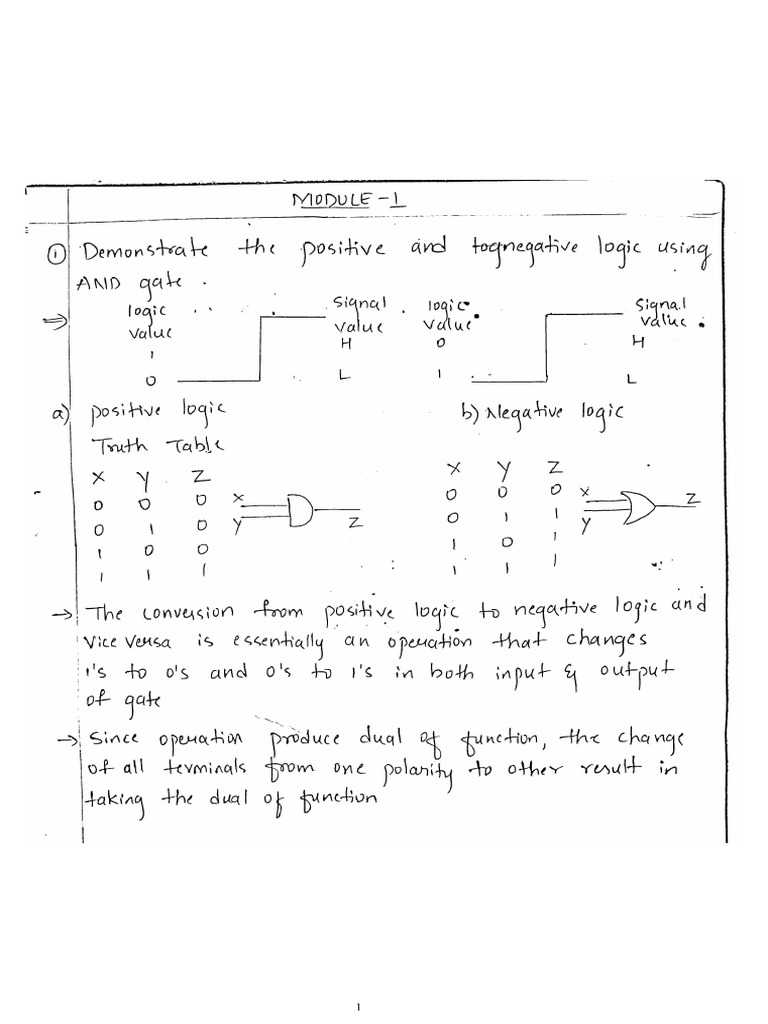 MODULE-1
① Demonstrate the positive and tognegative logic using
AND gate.
⇒ logic value Signal value logic value Signal value
1 H 0 H
0 L 1 L
a) positive logic b) Negative logic
Truth Table
X Y Z X Y Z
0 0 0 X 0 0 0 X Z
0 1 0 Y Z 0 1 1 Y
1 0 0 1 0 1
1 1 1 1 1 1
→ The conversion from positive logic to negative logic and
Vice Versa is essentially an operation that changes
1's to 0's and 0's to 1's in both input & output
of gate
→ Since operation produce dual of function, the change
of all terminals from one polarity to other result in
taking the dual of function
1